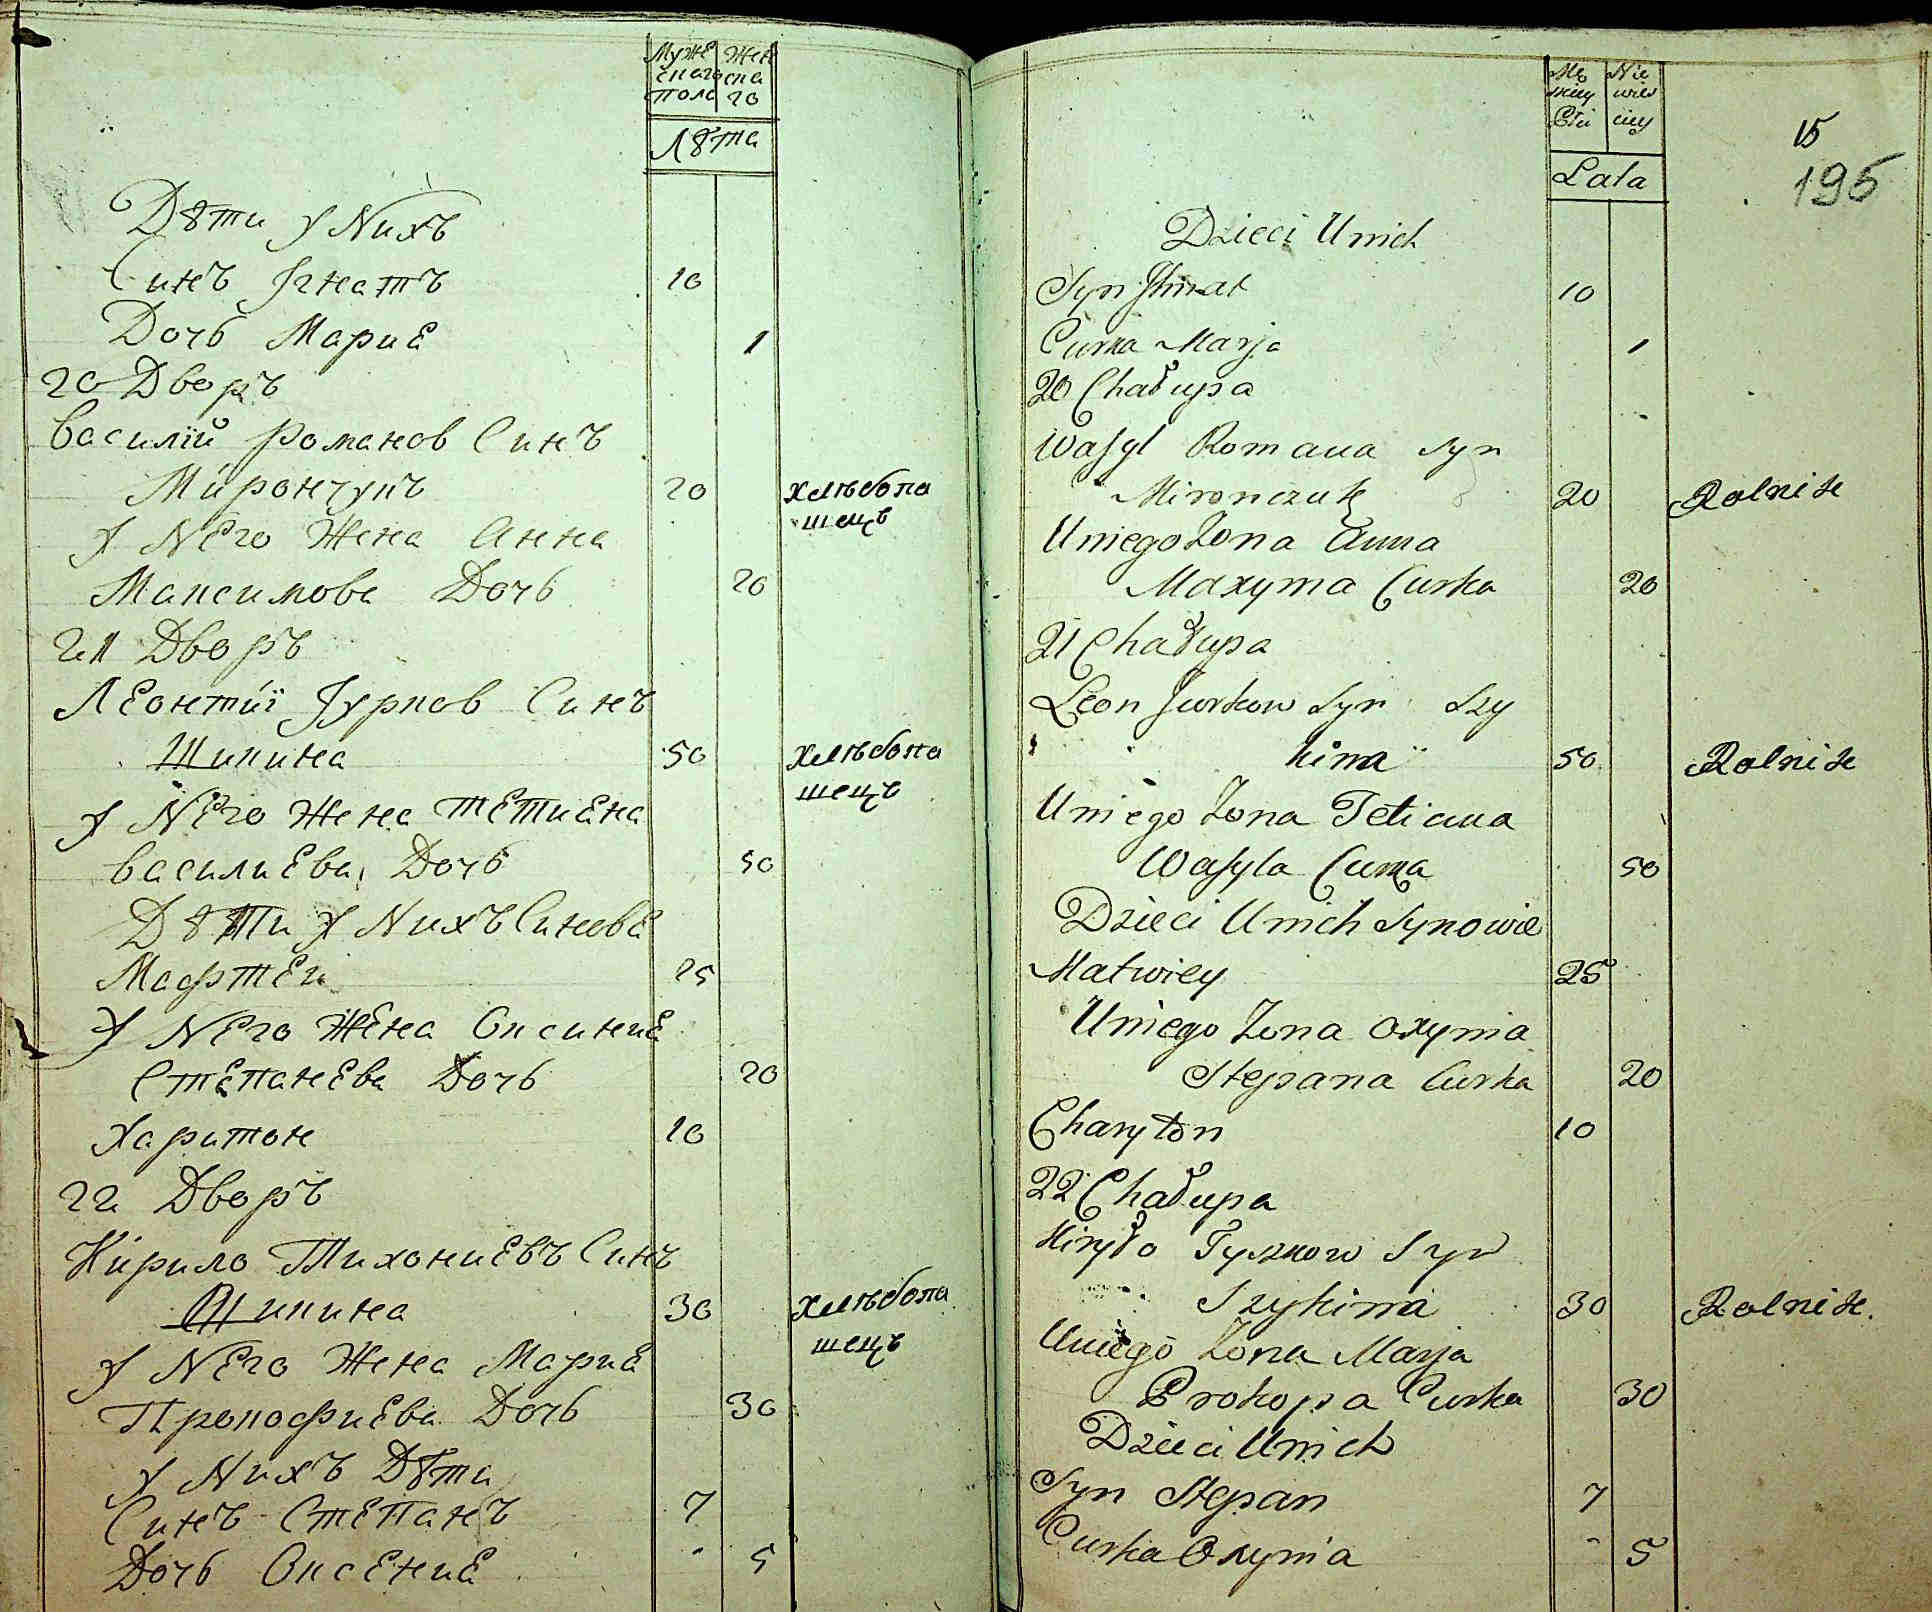 Муже Жен
скаго ска
пола го
Лѣта
Дѣти У Nихъ
Синъ Iгнатъ 10
Дочь Мариѣ 1
20 Дворъ
Василій Романов Синъ
Мирончукъ 20 хлѣбопа
шецъ
У Nего Жена Анна
Максимова Дочь 20
21 Дворъ
Леонтиї Юрков Синъ
Шикина 50 хлѣбопа
шецъ
У Nего Жена Тетиана
Василиева Дочь 50
Дѣти У Nихъ Синове
Мафтей 25
У Nего Жена Оксиниа
Степанева Дочь 20
Харитон 10
22 Дворъ
Кирило Тихониевъ Синъ
Шикина 30 хлѣбопа
шецъ
У Nего Жена Мариа
Прокофиева Дочь 30
У Nихъ Дѣти
Синъ Степанъ 7
Дочь Оксениа 5
Mę Nie
skiey wies
Płci ciey
Lata
15
195
Dzieci Unich
Syn Ihnat 10
Curka Marja 1
20 Chałupa
Wasyl Romana Syn
Mironczuk 20 Rolnik
Uniego Zona Anna
Maxyma Curka 20
21 Chałupa
Leon Jurkow Syn Szy
kina 50 Rolnik
Uniego Zona Tetiana
Wasyla Curka 50
Dzieci Unich Synowie
Matwiey 25
Uniego Zona Oxynia
Stepana Curka 20
Charyton 10
22 Chałupa
Kiryło Tyszkow Syn
Szykina 30 Rolnik
Uniego Zona Marja
Prokopa Curka 30
Dzieci Unich
Syn Stepan 7
Curka Oxynia 5